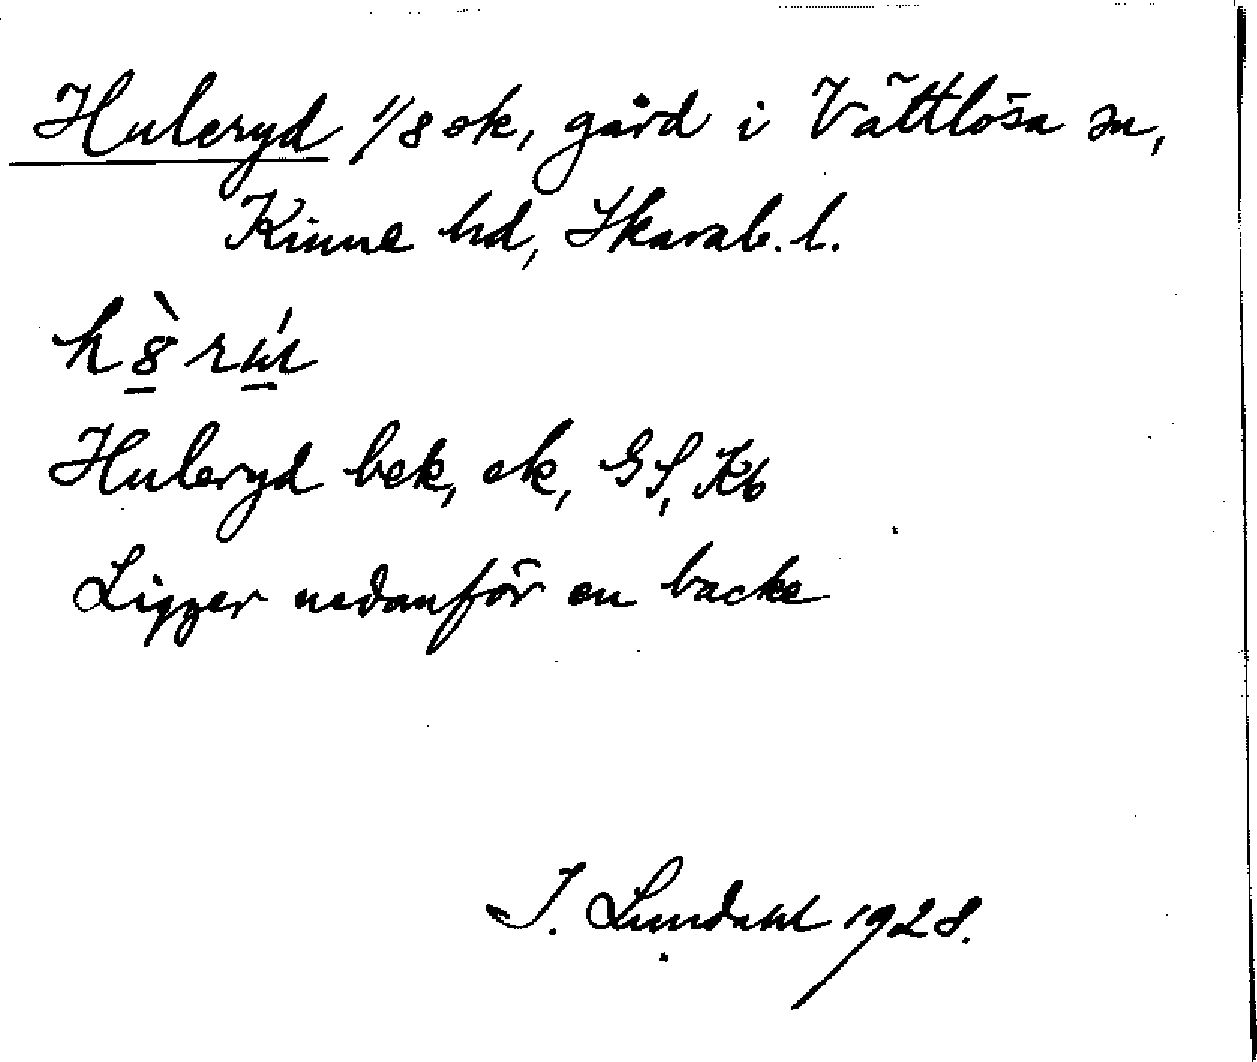 Huleryd 1/8 ek, gård i Vättlösa sn,
Kinne hd, Skarab. l.
Huleryd bek, ek, GS, Kb
Ligger nedanför en backe
I. Lundahl 1928.